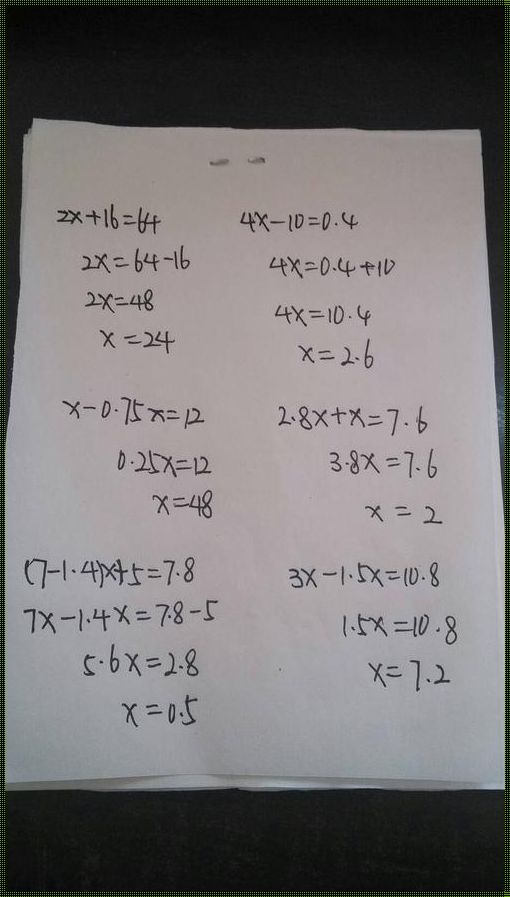 2x+16=64
2x=64-16
2x=48
x=24
4x-10=0.4
4x=0.4+10
4x=10.4
x=2.6
x-0.75x=12
0.25x=12
x=48
2.8x+x=7.6
3.8x=7.6
x=2
(7-1.4)x+5=7.8
7x-1.4x=7.8-5
5.6x=2.8
x=0.5
3x-1.5x=10.8
1.5x=10.8
x=7.2